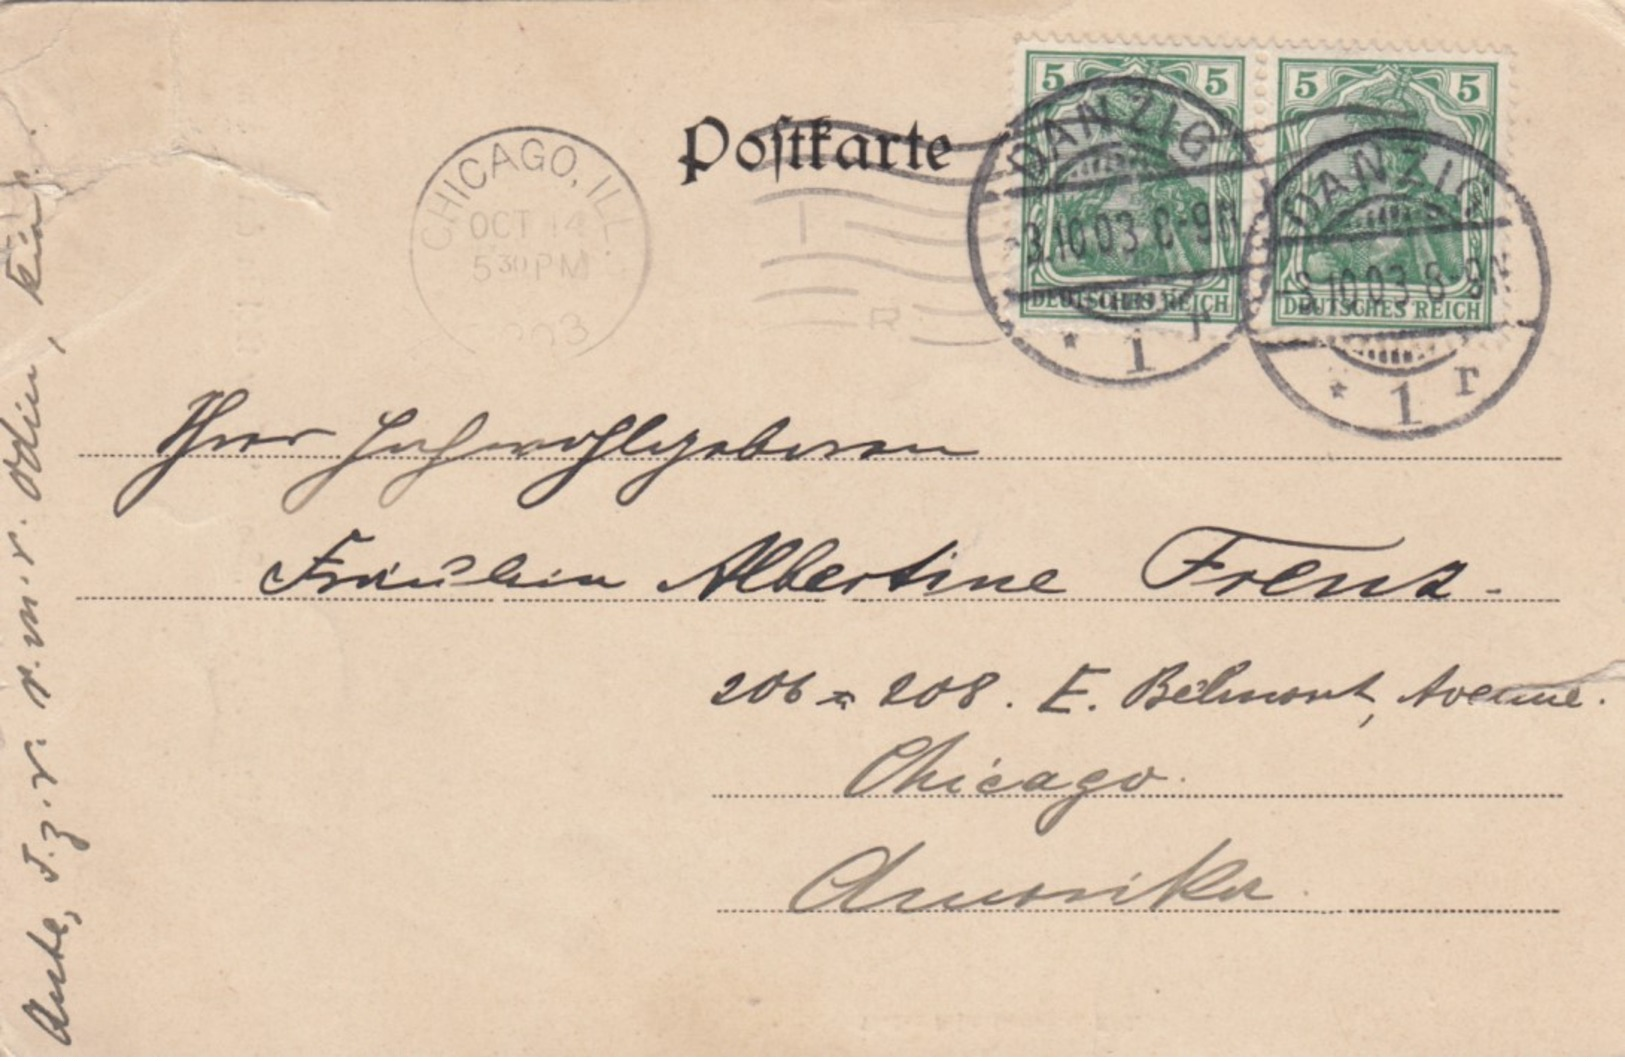 Postkarte
5 5
5 5
DEUTSCHES REICH
DEUTSCHES REICH
DANZIG
3.10.03 8-9N
* 1 r
DANZIG
3.10.03 8-9N
* 1 r
CHICAGO, ILL.
OCT 14
5 30 PM
R
Ihrer Hochwohlgeboren
Fräulein Albertine Frenz.
206 = 208. E. Belmont, Avenue.
Chicago.
Amerika.